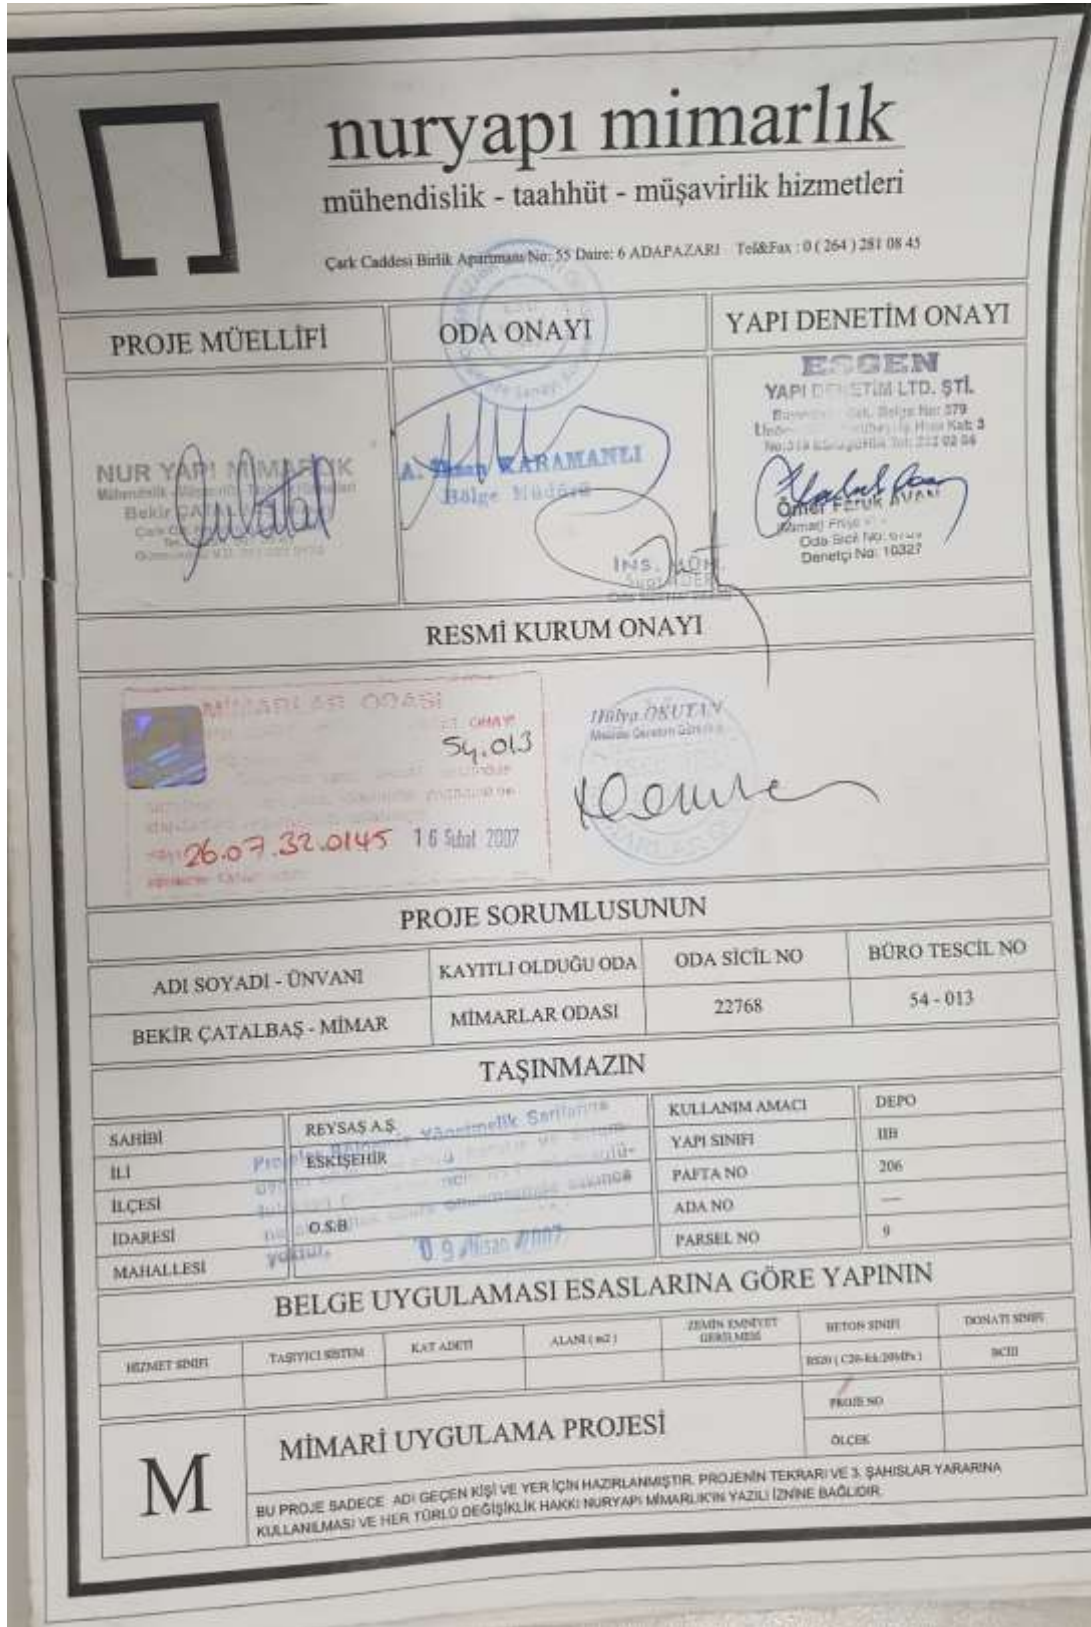 nuryapı mimarlık
mühendislik - taahhüt - müşavirlik hizmetleri
Çark Caddesi Birlik Apartmanı No: 55 Daire: 6 ADAPAZARI Tel&Fax : 0 ( 264 ) 281 08 45
PROJE MÜELLİFİ
ODA ONAYI
YAPI DENETİM ONAYI
NUR YAPI MİMARLIK
Bekir
A. KARAMANLI
Bölge Müdürü
İNŞ. MÜH.
ESGEN
YAPI DENETİM LTD. ŞTİ.
Ömer Faruk AVAN
Oda Sicil No:
Denetçi No: 10327
RESMİ KURUM ONAYI
MİMARLAR ODASI
54.013
26.07.32.0145 16 Şubat 2007
Hülya OKUTAN
PROJE SORUMLUSUNUN
ADI SOYADI - ÜNVANI KAYITLI OLDUĞU ODA ODA SİCİL NO BÜRO TESCİL NO
BEKİR ÇATALBAŞ - MİMAR MİMARLAR ODASI 22768 54 - 013
TAŞINMAZIN
SAHİBİ REYSAŞ A.Ş. KULLANIM AMACI DEPO
İLİ ESKİŞEHİR YAPI SINIFI IIB
İLÇESİ PAFTA NO 206
İDARESİ O.S.B. ADA NO —
MAHALLESİ PARSEL NO 9
yoktur. 09 Nisan 2007
BELGE UYGULAMASI ESASLARINA GÖRE YAPININ
HİZMET SINIFI TAŞIYICI SİSTEM KAT ADETİ ALANI ( m2 ) ZEMİN EMNİYET GERİLMESİ BETON SINIFI DONATI SINIFI
BS20 ( C20-fck:20MPa ) BCIII
M
MİMARİ UYGULAMA PROJESİ
PROJE NO
ÖLÇEK
BU PROJE SADECE ADI GEÇEN KİŞİ VE YER İÇİN HAZIRLANMIŞTIR. PROJENİN TEKRARI VE 3. ŞAHISLAR YARARINA
KULLANILMASI VE HER TÜRLÜ DEĞİŞİKLİK HAKKI NURYAPI MİMARLIK'IN YAZILI İZNİNE BAĞLIDIR.